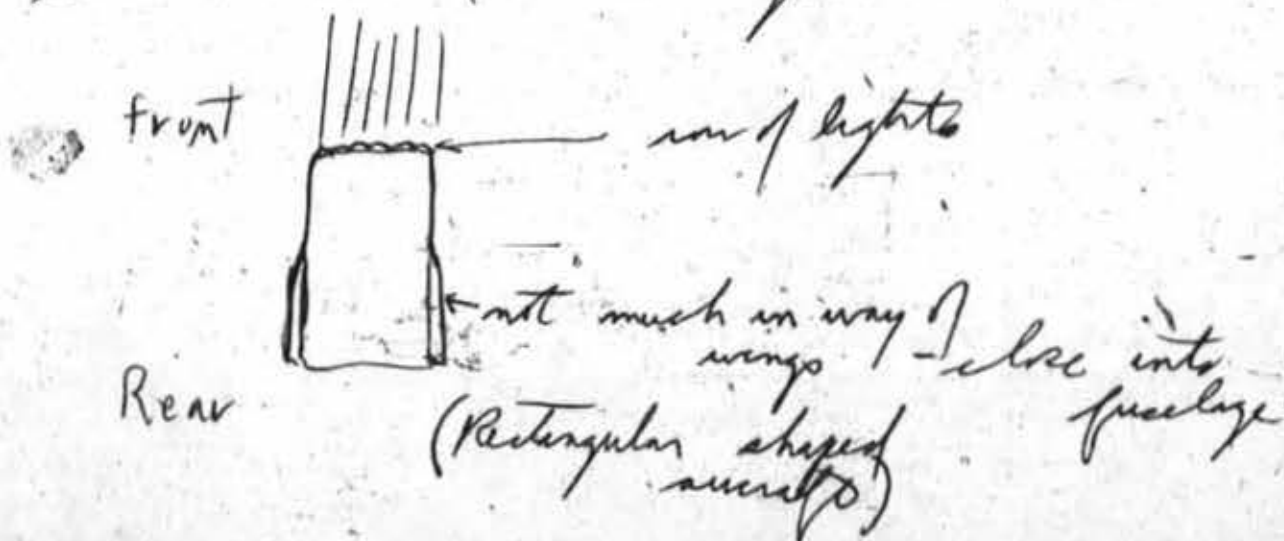 Front
row of lights
not much in way of
wings - close into
fuselage
Rear
(Rectangular shaped
aircraft)